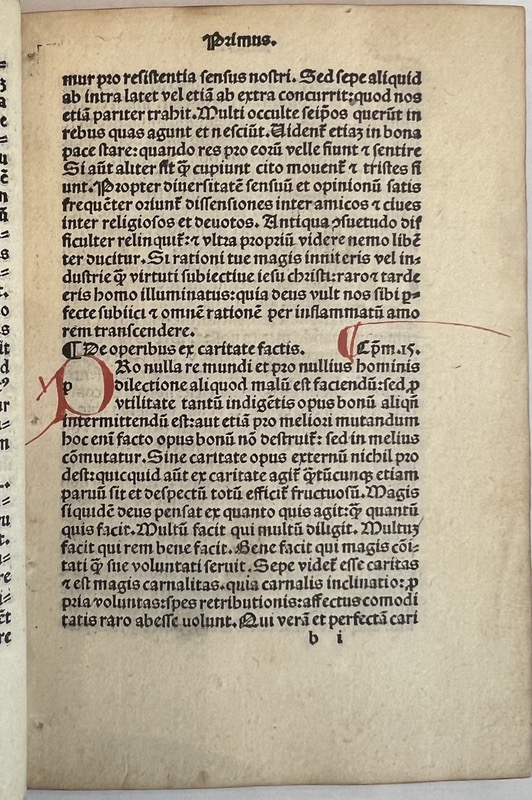 Primus.
mur pro resistentia sensus nostri. Sed sepe aliquid
ab intra latet vel etiã ab extra concurrit: quod nos
etiã pariter trahit. Multi occulte seip̃os querũt in
rebus quas agunt et nesciũt. Uident̃ etiaʒ in bona
pace stare: quando res pro eorũ velle fiunt ⁊ sentire
Si aũt aliter fit q̃ cupiunt cito mouent̃ ⁊ tristes fi
unt. Propter diuersitatẽ sensuũ et opinionũ satis
frequẽter oriunt̃ dissensiones inter amicos ⁊ ciues
inter religiosos et deuotos. Antiqua ꝯsuetudo dif
ficulter relinquit̃: ⁊ vltra propriũ videre nemo libẽ
ter ducitur. Si rationi tue magis inniteris vel in-
dustrie q̃ virtuti subiectiue iesu christi: raro ⁊ tarde
eris homo illuminatus: quia deus vult nos sibi ꝑ-
fecte subiici ⁊ omnẽ rationẽ per inflammatũ amo
rem transcendere.
¶ De operibus ex caritate factis. ¶ Cp̃m. 15.
PRo nulla re mundi et pro nullius hominis
dilectione aliquod malũ est faciendũ: sed ꝓ
vtilitate tantũ indigẽtis opus bonũ aliqñ
intermittendũ est: aut etiã pro meliori mutandum
hoc eni facto opus bonũ nõ destruit̃: sed in melius
cõmutatur. Sine caritate opus externũ nichil pro
dest: quicquid aũt ex caritate agit̃ q̃tũcunqʒ etiam
paruũ sit et despectũ totũ efficit̃ fructuosũ. Magis
siquidẽ deus pensat ex quanto quis agit: q̃ quantũ
quis facit. Multũ facit qui multũ diligit. Multuʒ
facit qui rem bene facit. Bene facit qui magis cõi-
tati q̃ sue voluntati seruit. Sepe videt̃ esse caritas
⁊ est magis carnalitas. quia carnalis inclinatio: ꝓ
pria voluntas: spes retributionis: affectus comodi
tatis raro abesse uolunt. Qui verã et perfectã cari
b i